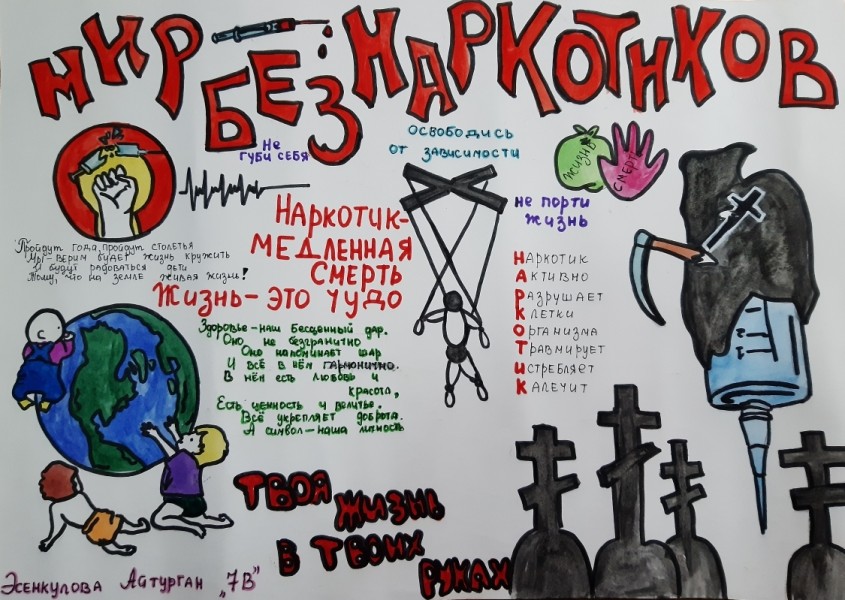 МИР БЕЗ НАРКОТИКОВ
Не
губи себя
Освободись
от зависимости
жизнь
смерт
не порти
жизнь
"Пройдут года, пройдут столетья
Мы - верим будет жизнь кружить
И будут радоваться дети
Тому, что на земле живая жизнь!
Наркотик-
медленная
смерть
Жизнь - это чудо
Здоровье - наш бесценный дар.
Оно не безгранично
Оно напоминает шар
И всё в нём гармонично.
В нём есть любовь и
красота,
Есть ценность и величье.
Всё укрепляет доброта.
А символ - наша личность
Наркотик
Активно
Разрушает
Клетки
Организма
Травмирует
Истребляет
Калечит
Твоя
жизнь
в твоих
руках
Эсенкулова Айтурган „7В"